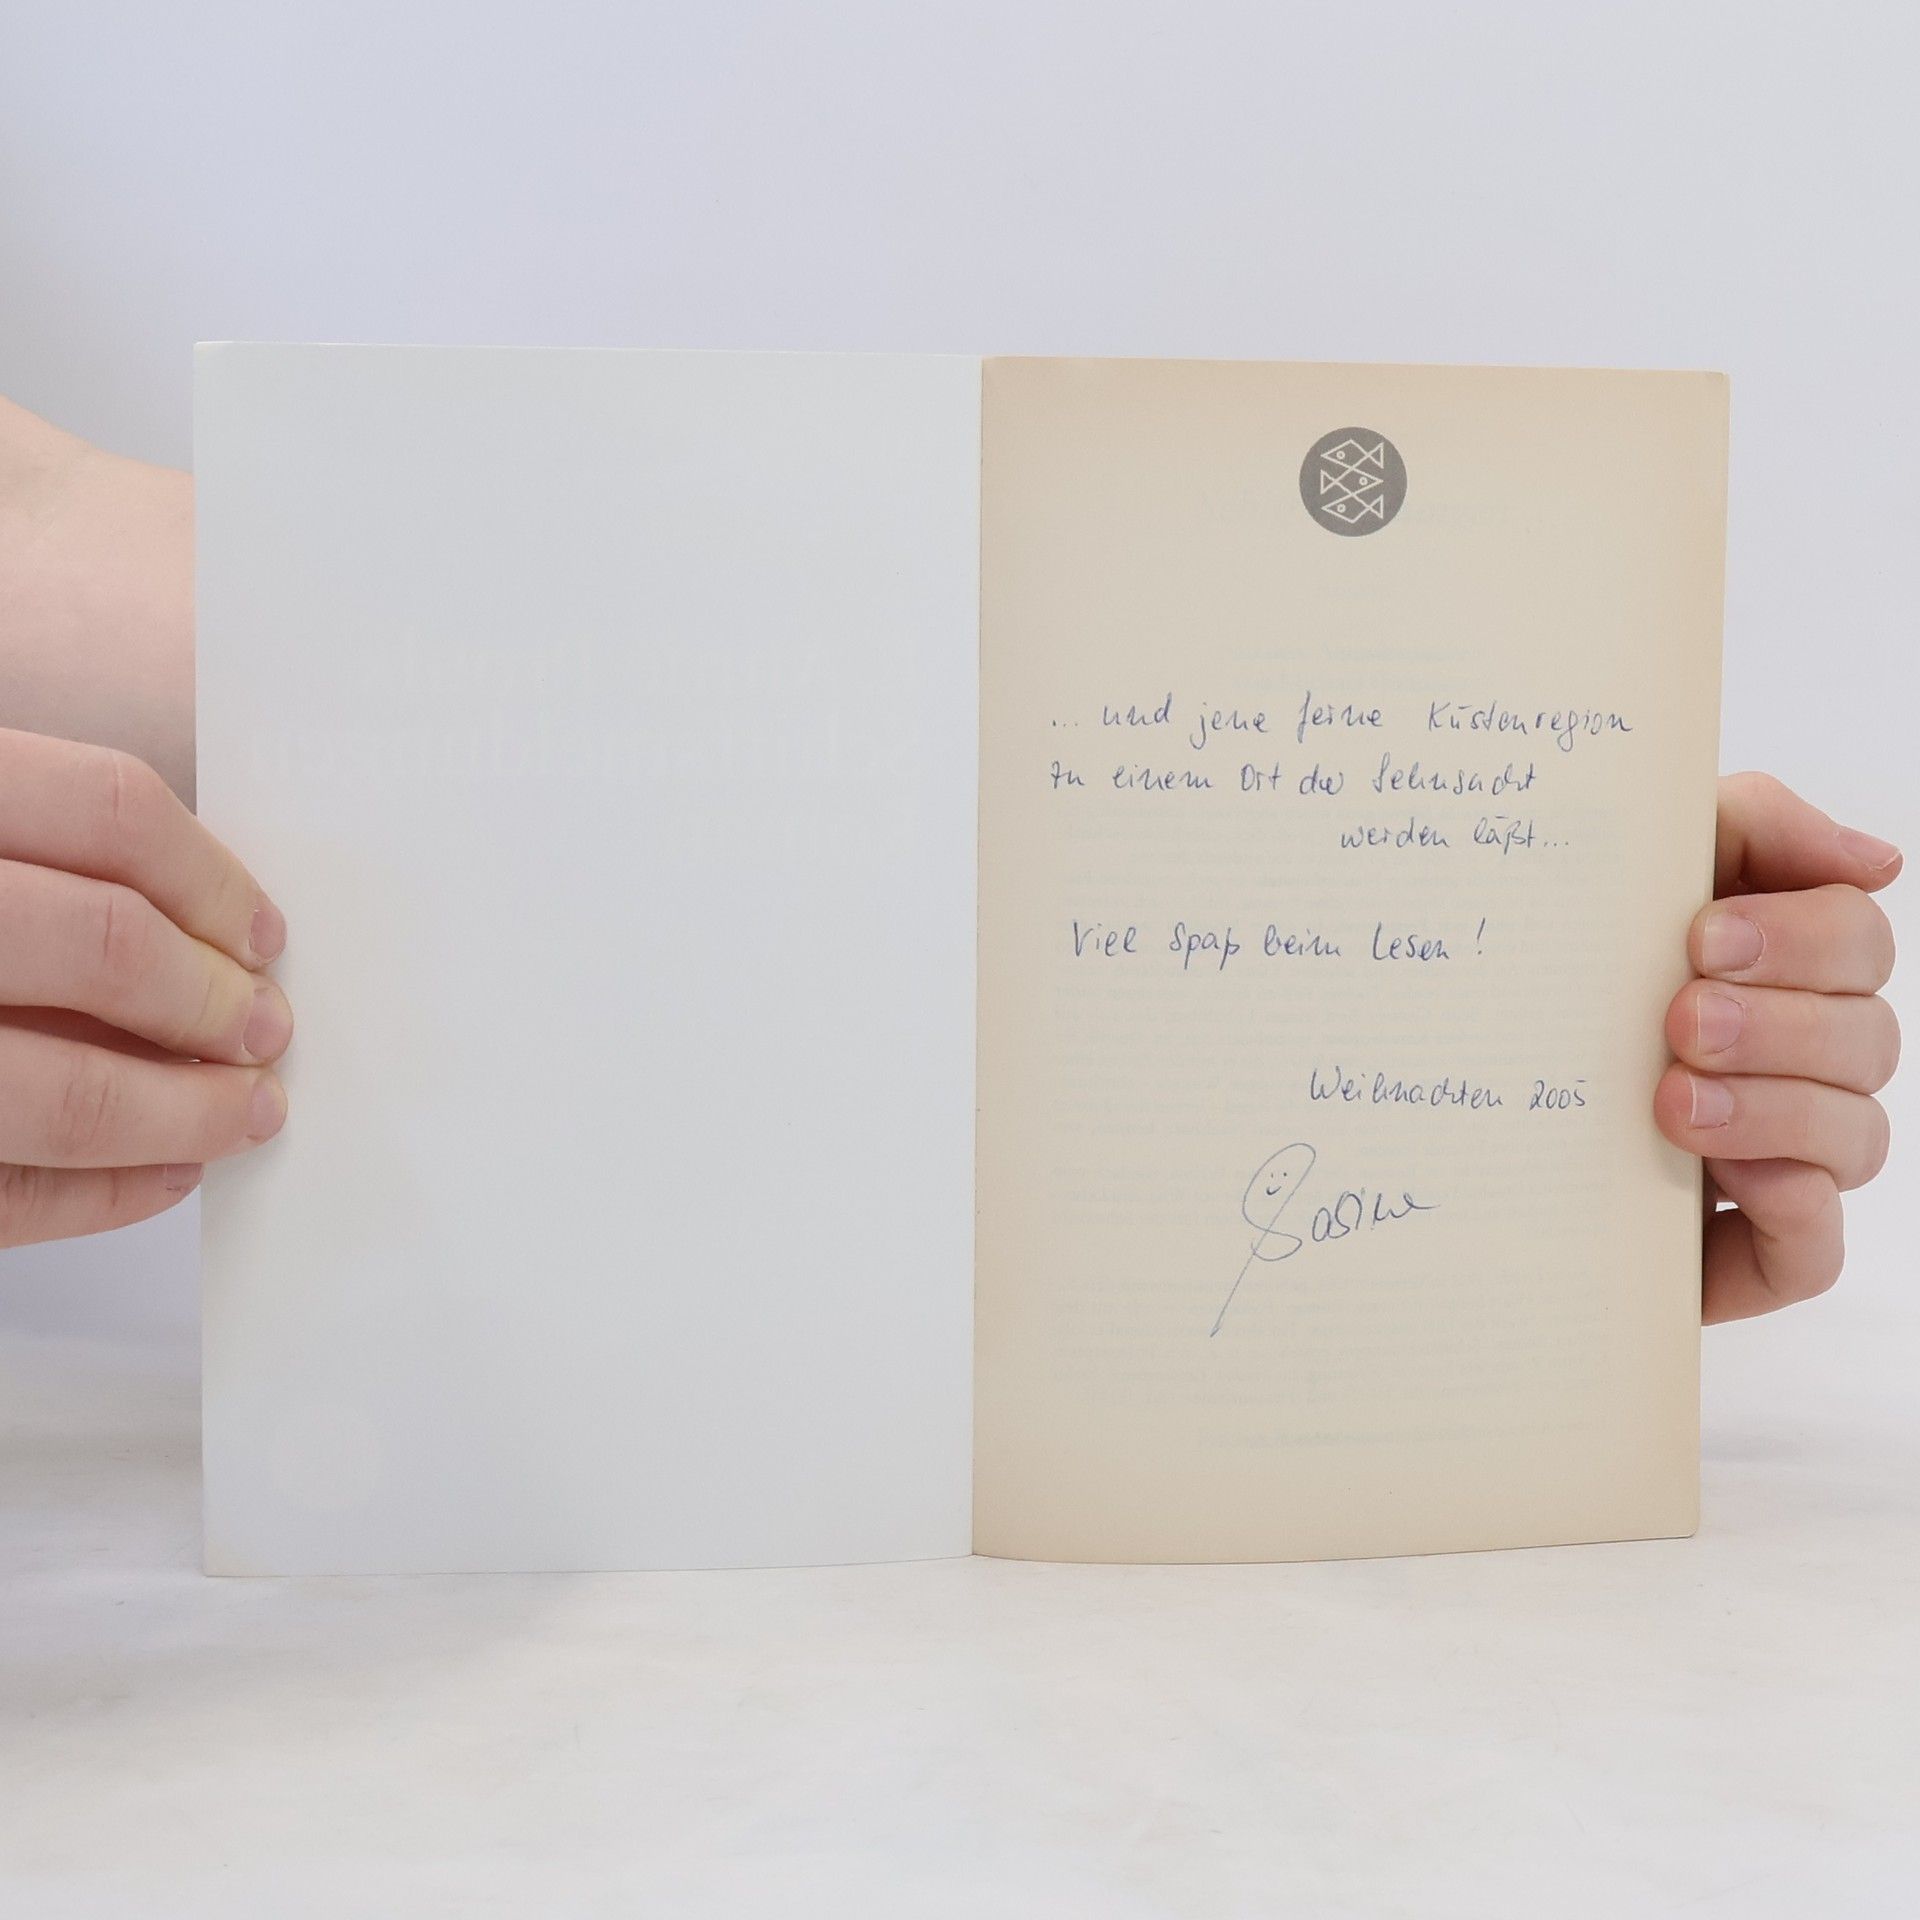 ... und jene ferne Küstenregion
zu einem Ort der Sehnsucht
werden läßt...
Viel Spaß beim Lesen!
Weihnachten 2005
Sabine